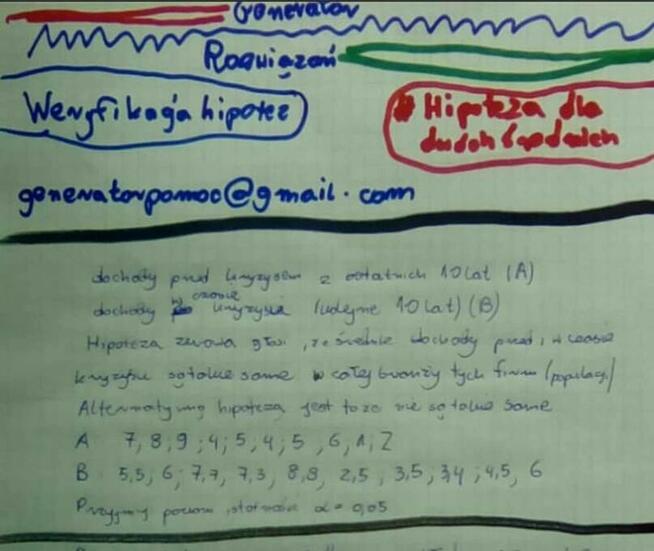 Generator
Rozwiązań
Weryfikacja hipotez
# Hipoteza dla
dwóch średnich
generatorpomoc@gmail.com
dochody przed kryzysem z ostatnich 10 lat (A)
dochody w czasie kryzysu (kolejne 10 lat) (B)
Hipoteza zerowa głosi, że średnie dochody przed, i w czasie
kryzysu są takie same w całej branży tych firm (populacji)
Alternatywną hipotezą jest to że nie są takie same
A 7, 8; 9; 4; 5; 4; 5, 6, 1; 2
B 5,5, 6; 7,7, 7,3, 8,8, 2,5, 3,5; 3,4; 4,5, 6
Przyjmij poziom istotności α = 0,05